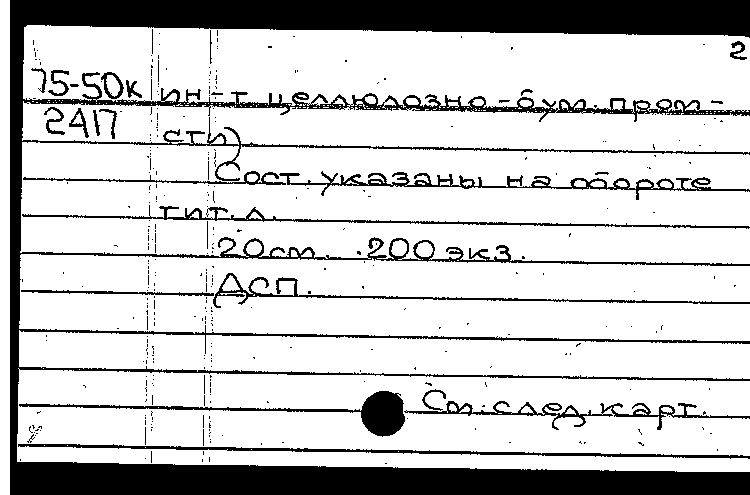 2
75-50к ин-т целлюлозно-бум. пром-
2417 сти)
Сост. указаны на обороте
тит. л.
20см. 200 экз.
ДСП.
См. след. карт.